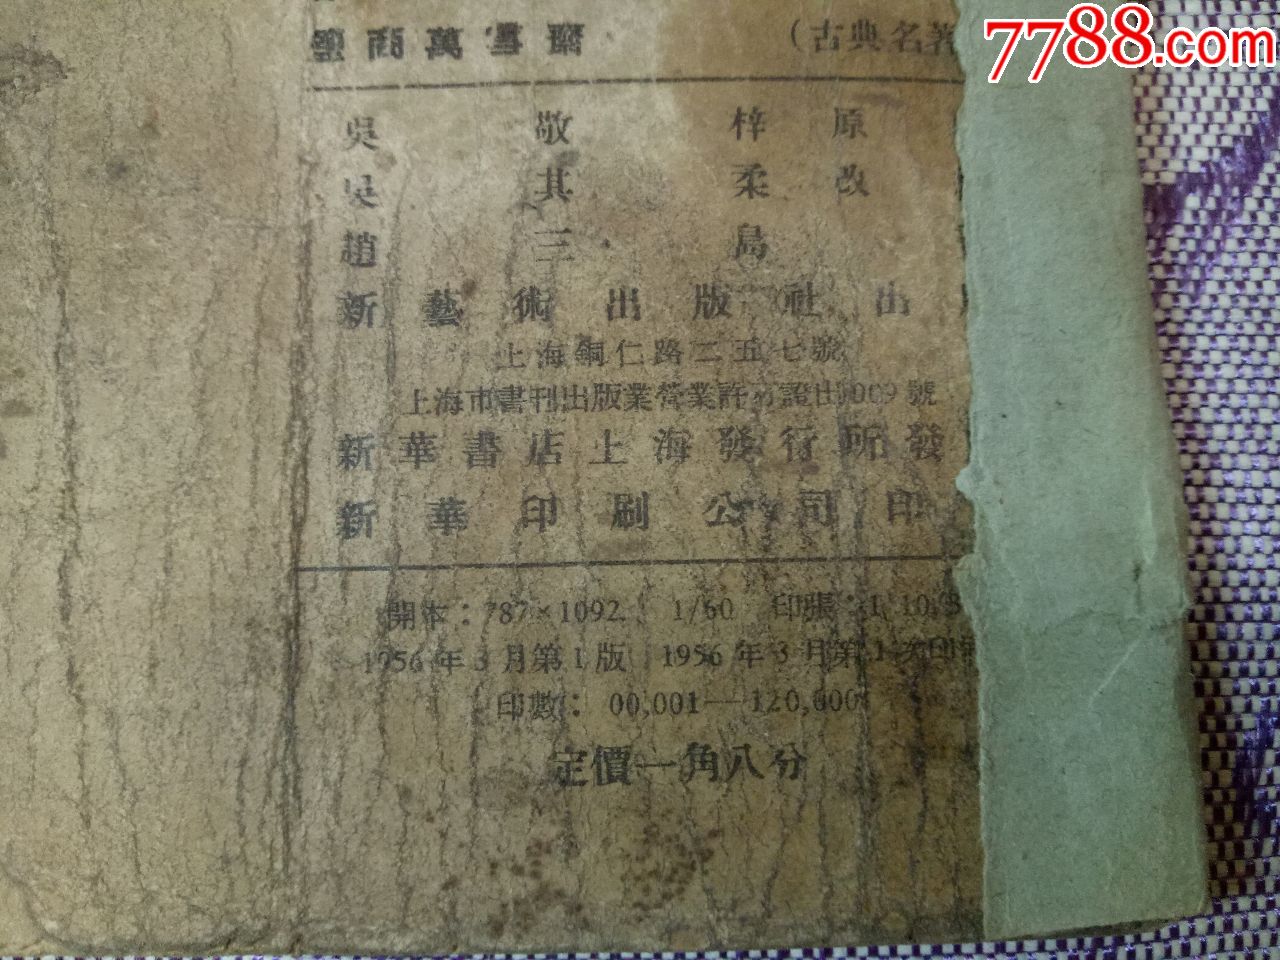 7788.com
鹽商萬雪齋 (古典名著
吳敬梓原
吳其柔改
趙三島
新藝術出版社出
上海銅仁路二五七號
上海市書刊出版業營業許可證出009號
新華書店上海發行所發
新華印刷公司印
開本:787×1092 1/60 印張:1
1956年3月第1版 1956年3月第1次印
印數: 00,001—120,000
定價一角八分